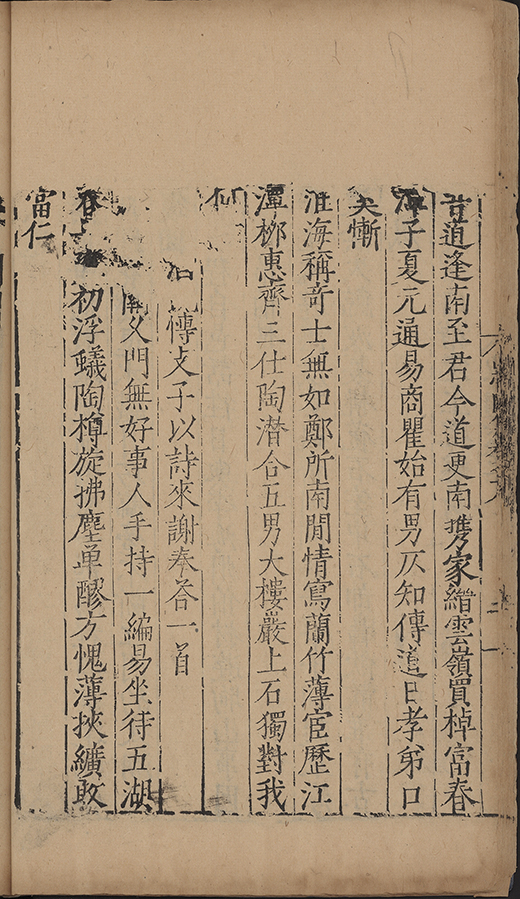 道逢南至君今道更南携家縉雲嶺買棹富春
子夏元通易商瞿始有男仄知傳道日孝弟口
夫慚
淮海稱奇士無如鄭所南閒情寫蘭竹薄宦歷江
潭栁惠齊三仕陶潜合五男大樓巖上石獨對我
何
慱攴子以詩來謝奉荅一首
父門無好事人手持一編易坐待五湖
春初浮蟻陶樽旋拂塵单醪方愧薄挾纊敢
富仁